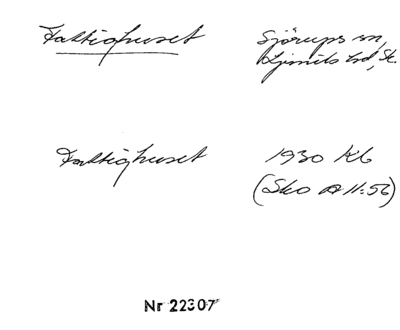 Fattighuset Sjörups sn,
Ljunits hd, Sk.
Fattighuset 1930 Kb
(Sko A 11:56)
Nr 22307